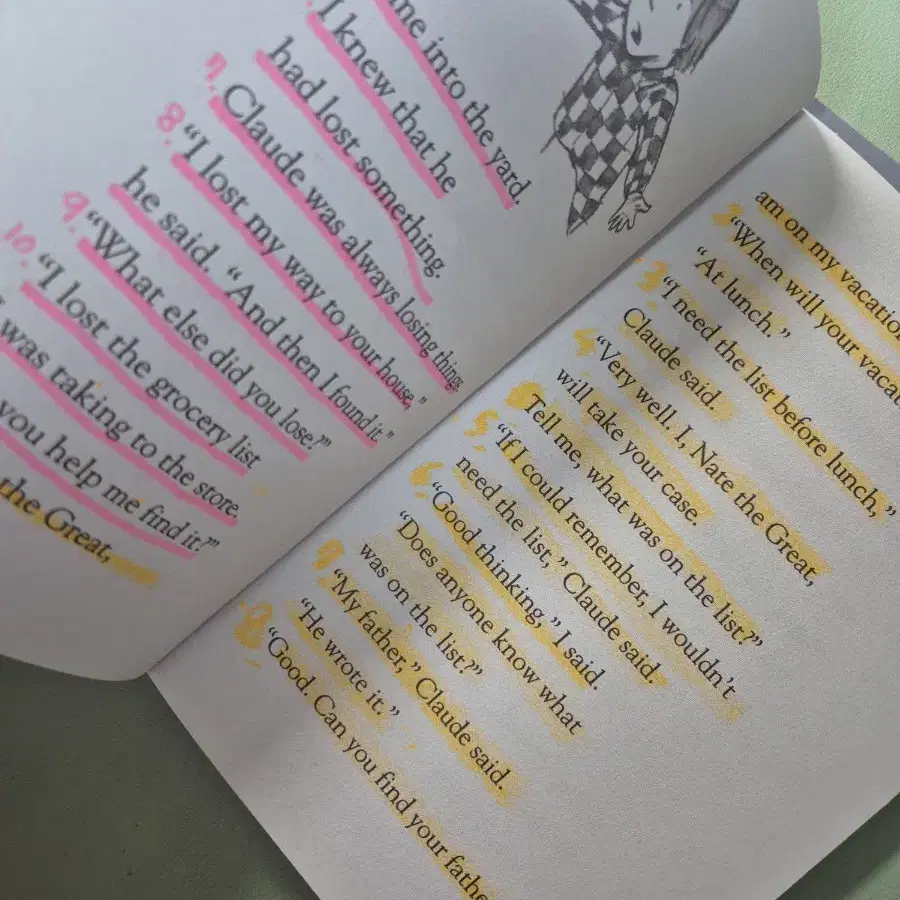 me into the yard.
I knew that he
had lost something.
7. Claude was always losing things.
8. “I lost my way to your house,”
he said. “And then I found it.”
9. “What else did you lose?”
10. “I lost the grocery list
I was taking to the store.
you help me find it?”
the Great,
am on my vacation
2. “When will your vacat
“At lunch.”
3. “I need the list before lunch,”
Claude said.
4. “Very well. I, Nate the Great,
will take your case.
Tell me, what was on the list?”
5. “If I could remember, I wouldn’t
need the list,” Claude said.
6. “Good thinking,” I said.
“Does anyone know what
was on the list?”
7. “My father,” Claude said.
“He wrote it.”
8. “Good. Can you find your fathe